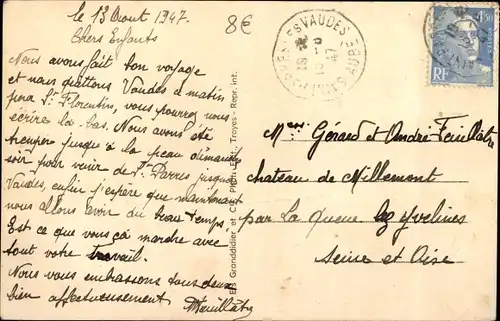 le 13 Aout 1947.
8€
Chers Enfants
Nous avons fait bon voyage
et nous quittons Vaudes ce matin
pour St Florentin, vous pourrez nous
écrire là-bas. Nous avons été
trempés jusqu'à la peau dimanche
soir pour venir de St Parres jusqu'à
Vaudes, enfin j'espère que maintenant
nous allons avoir du beau temps.
Est ce que vous ça marche avec
tout votre travail.
Nous vous embrassons tous deux
bien affectueusement
Els Granddidier et Cie, Photo-Edit., Troyes - Repr. int.
VAUDES
AUBE
47
RF
4F50
Mers Gérard et André Feuillatre
chateau de Millemont
par La Queue lez Yvelines
Seine et Oise